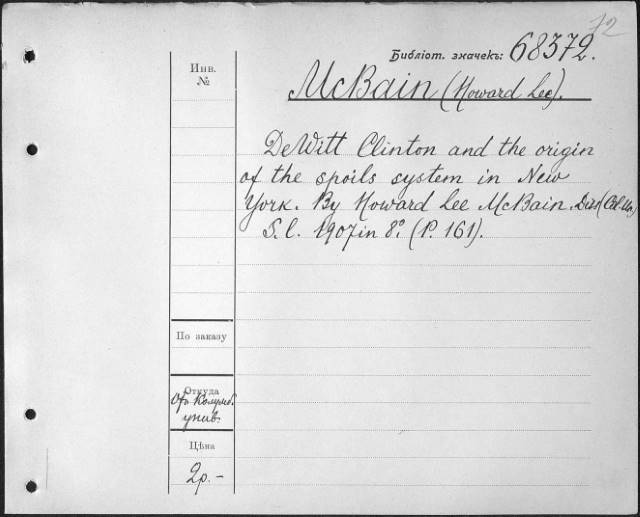 72
Библіот. значекъ: 68372.
Инв.
№
McBain (Howard Lee).
DeWitt Clinton and the origin
of the spoils system in New
York. By Howard Lee McBain. Diss. (Col. Un.)
S. l. 1907 in 8°. (P. 161).
По заказу
Откуда
Отъ Колумб.
унив.
Цѣна
2р.-